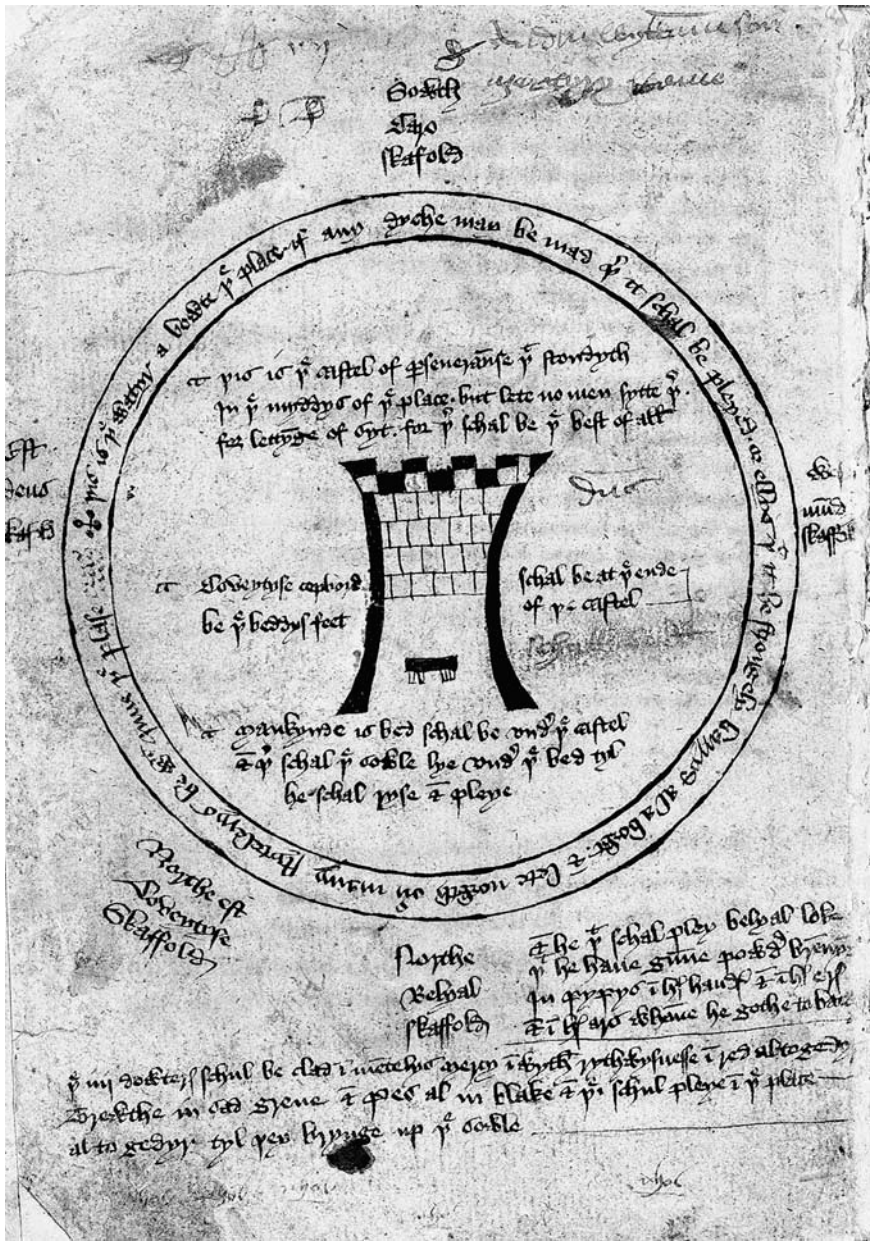 Sowth
Caro
skafold
þis is þe watyr a bowte þe place if any dyche may be mad þer it schal be pleyed or ellys þt it be strongely barryd al a bowt & lete nowth ouyr many stytelerys be wt inne þe plase
þis is þe castel of perseueraunse þt stondyth
In þe myddys of þe place but lete no men sytte þer
for lettynge of syt for þer schal be þe best of all
Est
deus
skafold
We
mund
skaffold
Coveytyse copbord
be þe beddys feet
schal be at þe ende
of þe castel
Mankynde is bed schal be vndyr þe castel
& þer schal þe sowle lye vndyr þe bed tyl
he schal ryse & pleye
Northe est
Coveytyse
Skaffold
Northe
Belyal
skaffold
& he þt schal pley belyal loke
þt he haue gunne powdyr brennyng
In pypys in hs handys & in hs erys
& in hs ars whanne he gothe to batayl
þe iiij dowterys schul be clad in mentelys mercy in wyth rythwysnesse in red altogedyr
Trewthe in sad grene & pes al in blake & þei schul pleye in þe place
al to gedyr tyl þey brynge up þe sowle